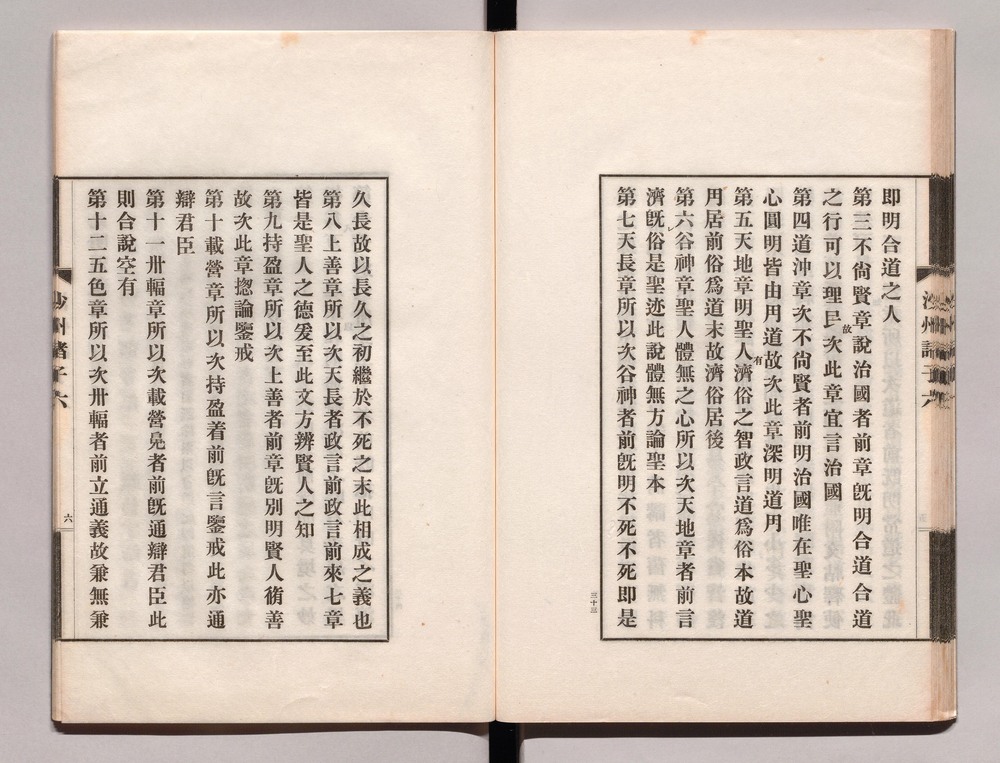 即明合道之人
第三不尙賢章說治國者前章旣明合道合道
之行可以理㠯故次此章宜言治國
第四道沖章次不尙賢者前明治國唯在聖心聖
心圓明皆由用道故次此章深明道用
第五天地章明聖人有濟俗之智政言道爲俗本故道
用居前俗爲道末故濟俗居後
第六谷神章聖人體無之心所以次天地章者前言
濟旣俗是聖迹此說體無方論聖本
第七天長章所以次谷神者前旣明不死不死即是
三十三
久長故以長久之初繼於不死之末此相成之義也
第八上善章所以次天長者政言前政言前來七章
皆是聖人之德爰至此文方辨賢人之知
第九持盈章所以次上善者前章旣別明賢人脩善
故次此章揔論鑒戒
第十載營章所以次持盈着前旣言鑒戒此亦通
辯君臣
第十一卅輻章所以次載營㒵者前旣通辯君臣此
則合說空有
第十二五色章所以次卅輻者前立通義故兼無兼
沙州諸子六
六